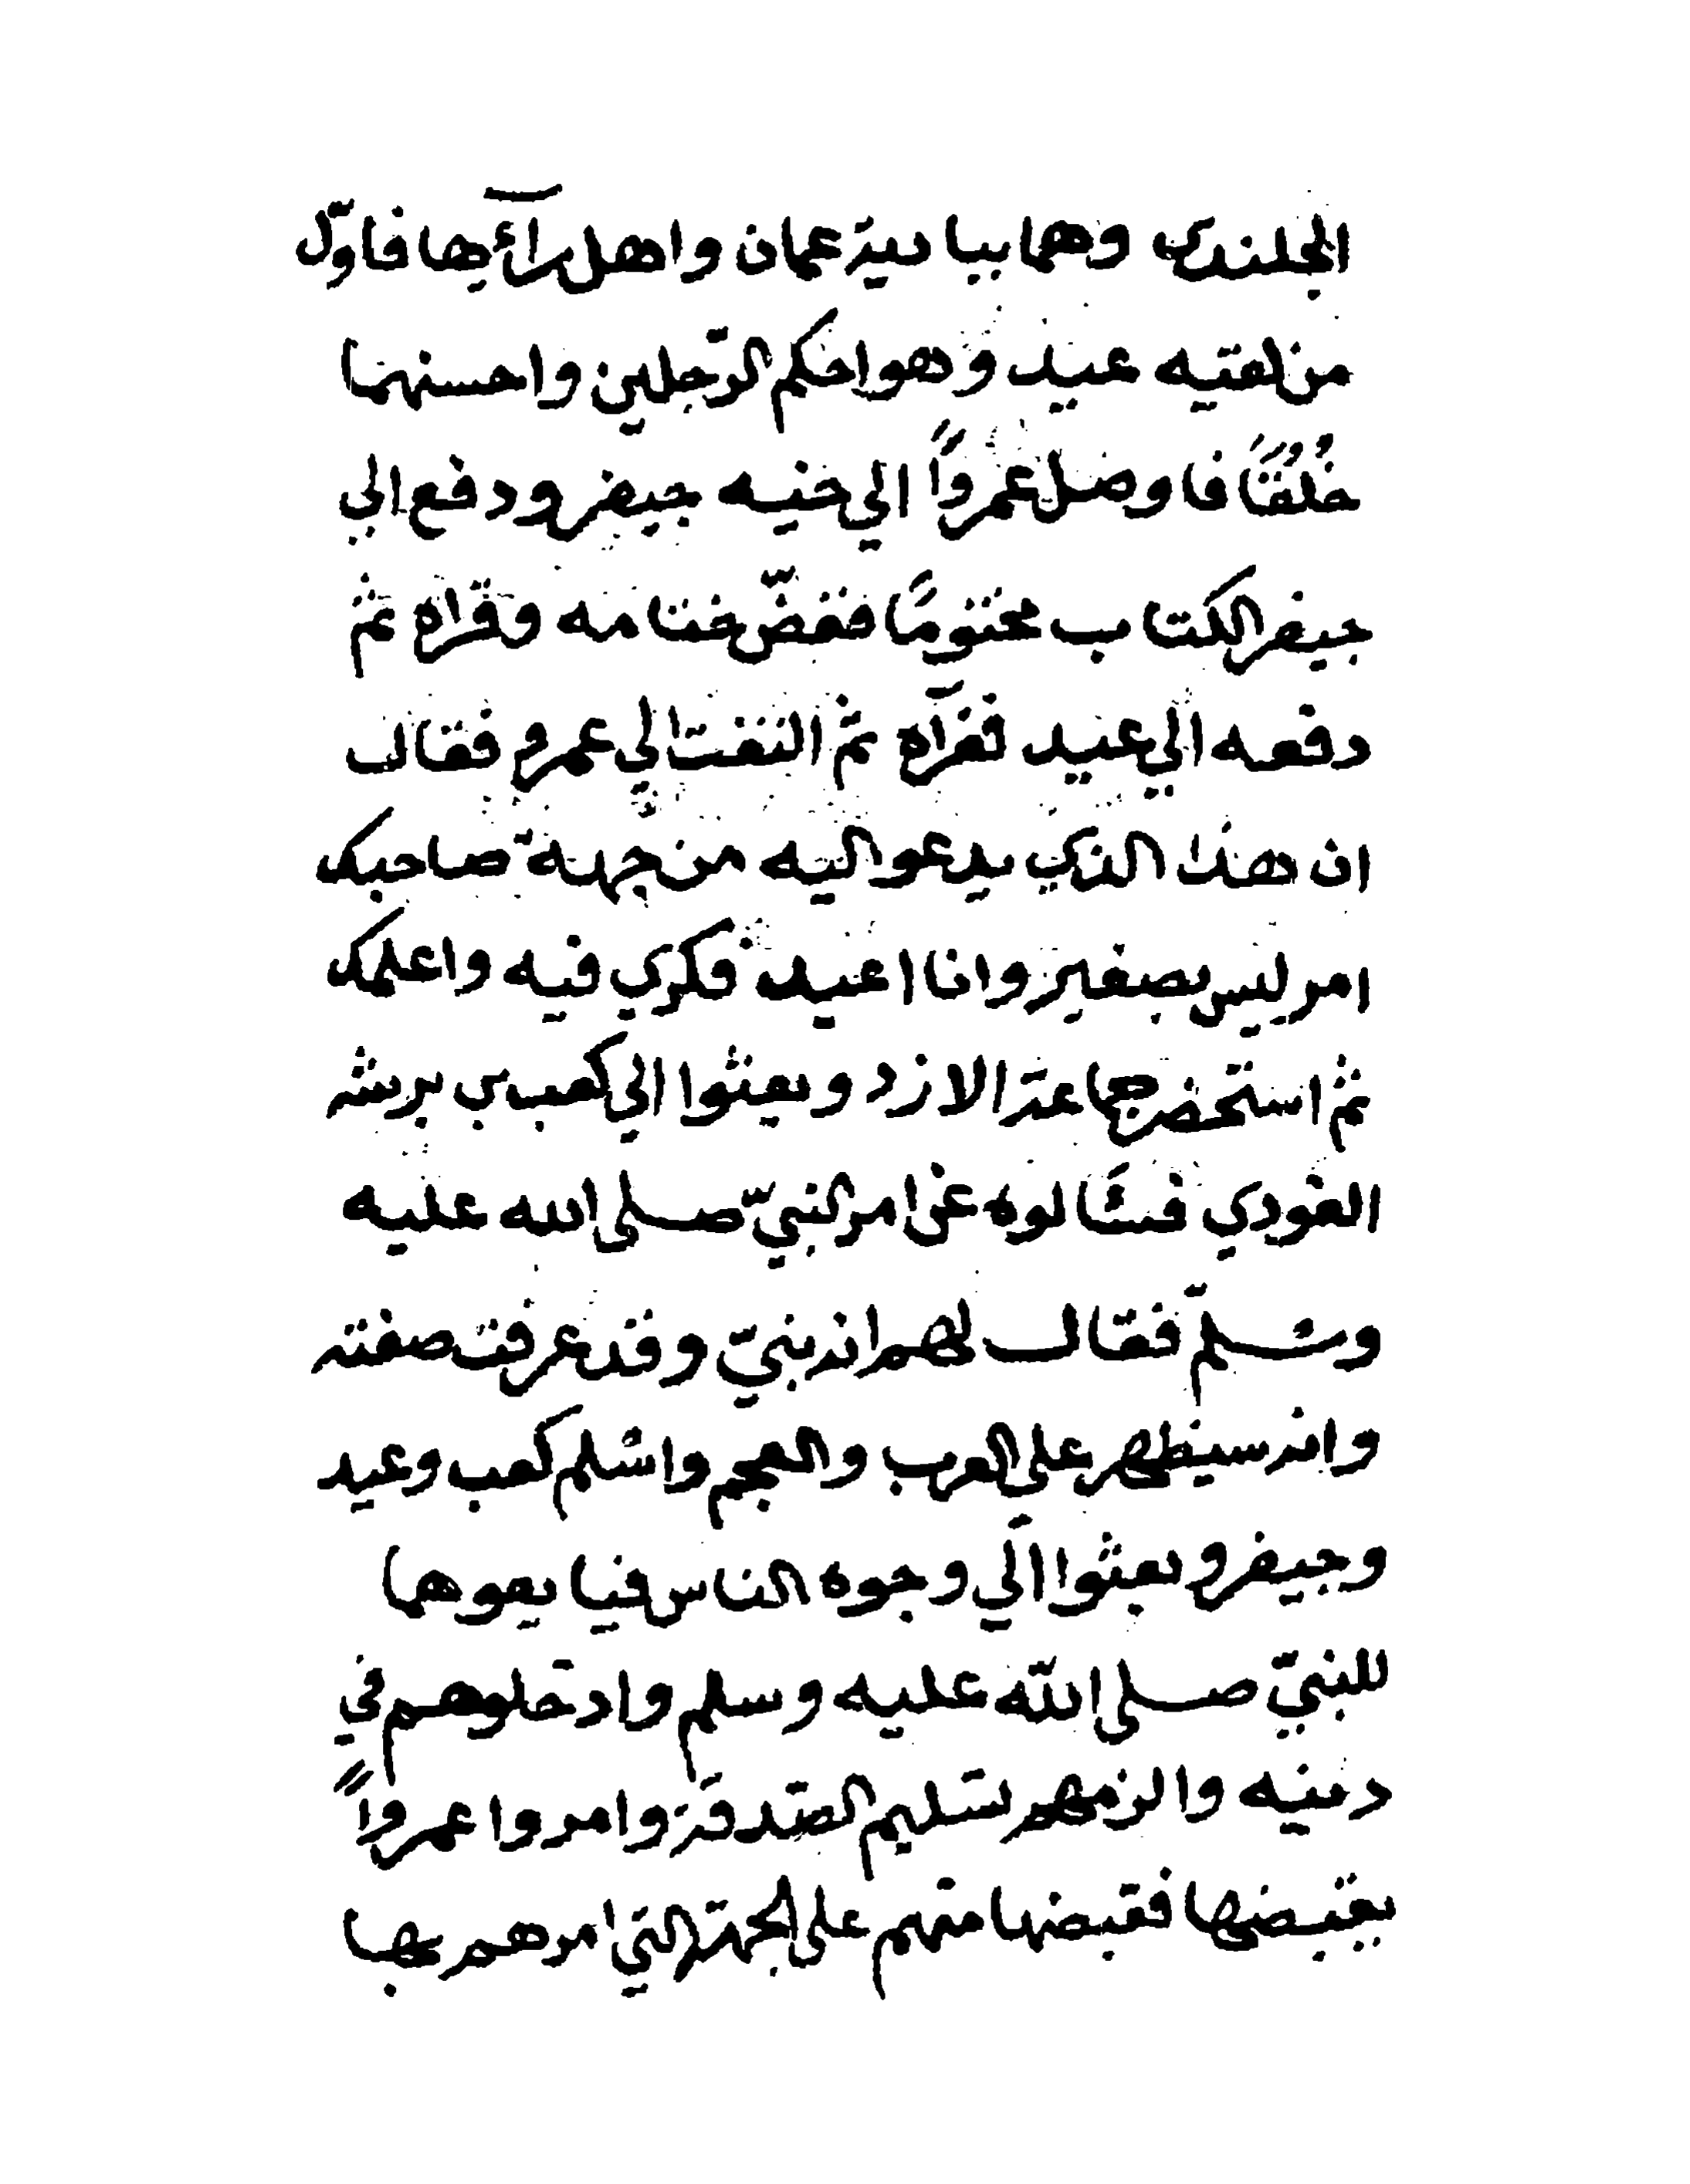 الجلندى وهما بيادير عمان واهل رآئها فاوّل
من لقيه عبد وهو احكم الرّجلين واحسنهما
خُلُقًا فاوصل عمروًا الي اخيه جيفر ودفع الي
جيفر الكتاب مختومًا ففضّ ختامه وقراه ثم
دفعه الي عبد فقرآه ثم التفت الي عمرو فقال
ان هذا الذي يدعو اليه من جهة صاحبك
امر ليس بصغير وانا اعيد فكري فيه واعلمك
ثم استحضر جماعة الازد وبعثوا الي كعب بن برشه
العودي فسالوه عن امر النبيّ صلى الله عليه
وسلّم فقال لهم انه نبيّ وقد عرفت صفته
وانه سيظهر على العرب والعجم واسلم كعب وعبد
وجيفر وبعثوا الي وجوه الناس فبايعوهما
للنبيّ صلى اللّه عليه وسلم وادخلوهم في
دينه والزمهم تسليم الصّدقة وامروا عمروًا
بقبضها فقبضها منهم على الجهة التي امرهم بها